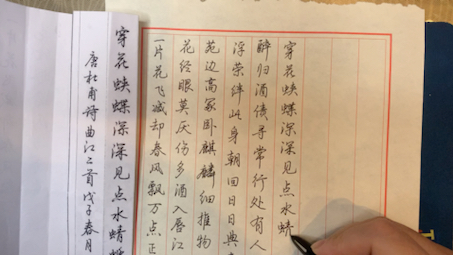 穿花蛱蝶深深见点水蜻
唐杜甫诗曲江二首戊子春月
一片花飞减却春风飘万点正
花经眼莫厌伤多酒入唇江
苑边高冢卧麒麟细推物
浮荣绊此身朝回日日典
醉归酒债寻常行处有人
穿花蛱蝶深深见点水蜻